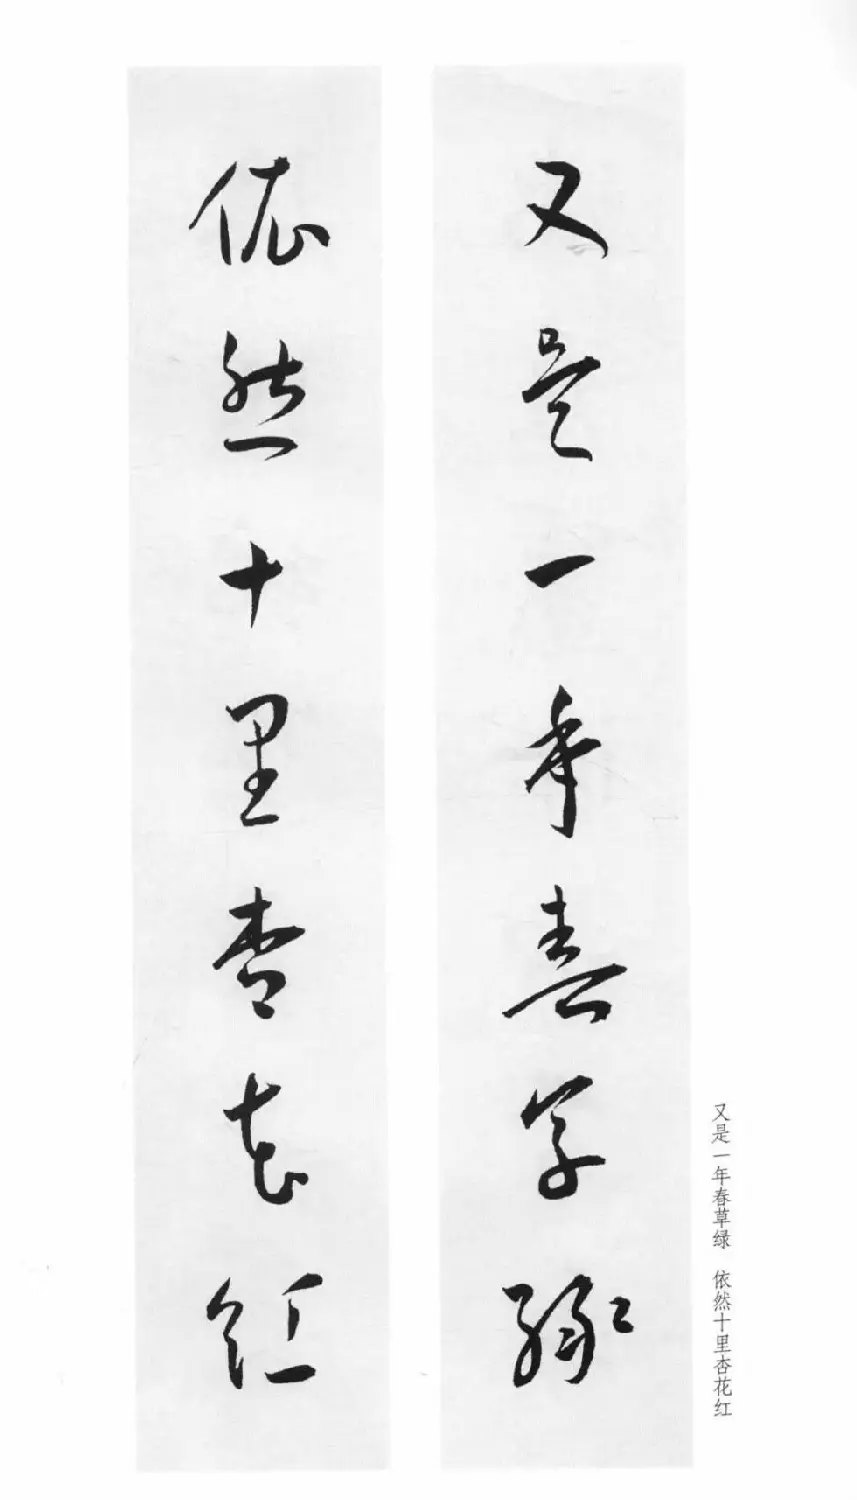 又是一年春草绿
依然十里杏花红
又是一年春草绿 依然十里杏花红